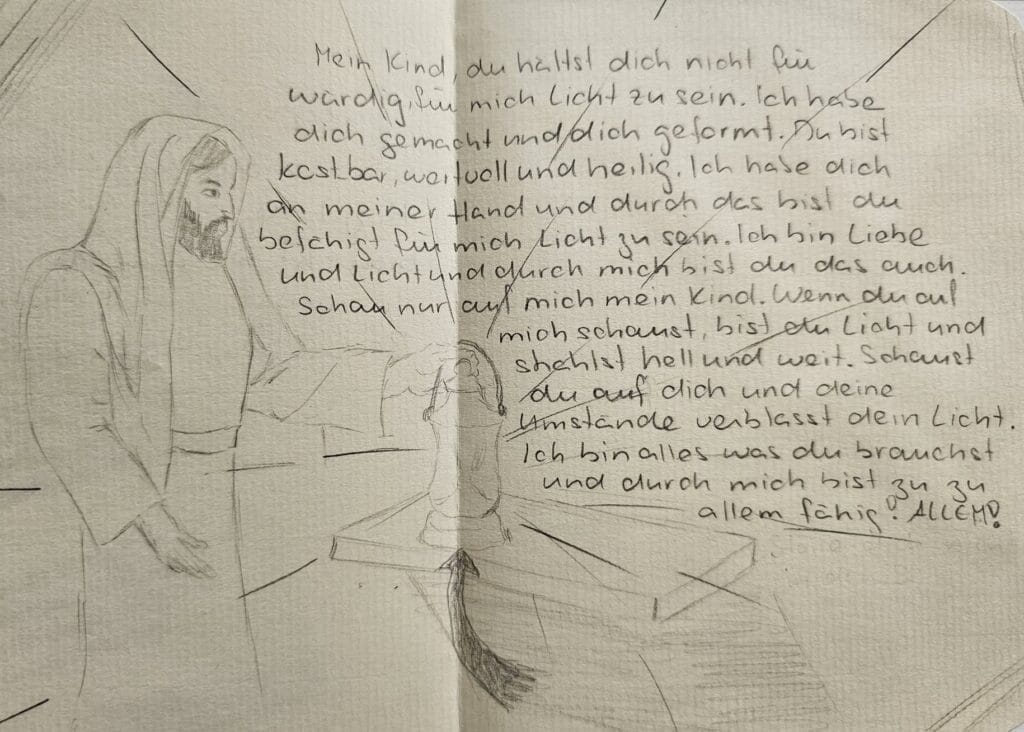 Mein Kind, du hältst dich nicht für
würdig, für mich Licht zu sein. Ich habe
dich gemacht und dich geformt. Du bist
kostbar, wertvoll und heilig. Ich habe dich
an meiner Hand und durch das bist du
befähigt für mich Licht zu sein. Ich bin Liebe
und Licht und durch mich bist du das auch.
Schau nur auf mich mein Kind. Wenn du auf
mich schaust, bist du Licht und
strahlst hell und weit. Schaust
du auf dich und deine
Umstände verblasst dein Licht.
Ich bin alles was du brauchst
und durch mich bist zu zu
allem fähig! ALLEM!